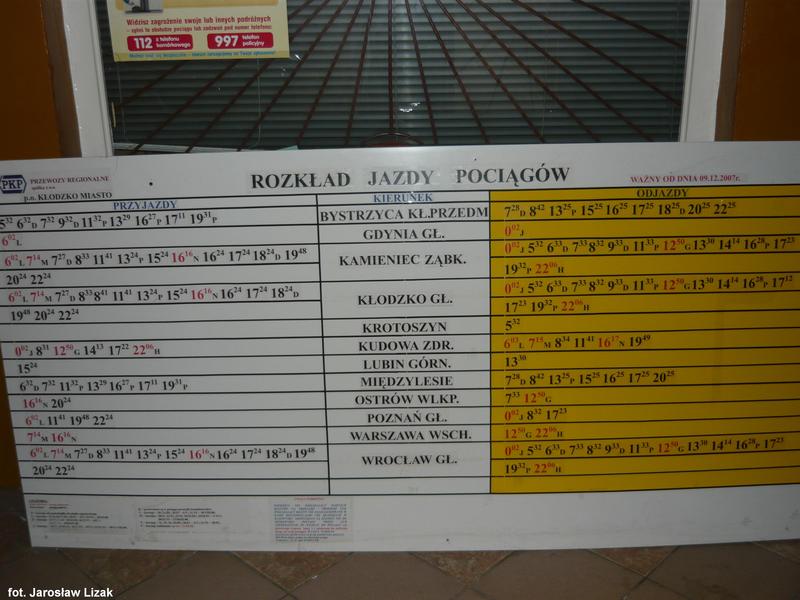 Widzisz zagrożenie swoje lub innych podróżnych
- zgłoś to obsłudze pociągu lub zadzwoń pod numer telefonu:
112 z telefonu komórkowego 997 telefon policyjny
PKP PRZEWOZY REGIONALNE
spółka z o.o.
p.o. KŁODZKO MIASTO
ROZKŁAD JAZDY POCIĄGÓW
WAŻNY OD DNIA 09.12.2007r.
PRZYJAZDY KIERUNEK ODJAZDY
532 632D 732 932D 1132P 1329 1627P 1711 1931P BYSTRZYCA KŁ.PRZEDM 728D 842 1325P 1525 1625 1725 1825D 2025 2225
602L GDYNIA GŁ. 002J
602L 714M 727D 833 1141 1324P 1524 1616N 1624 1724 1824D 1948 KAMIENIEC ZĄBK. 002J 532 633D 733 832 933D 1133P 1250G 1330 1414 1628P 1723
2024 2224 1932P 2206H
602L 714M 727D 833 841 1141 1324P 1524 1616N 1624 1724 1824D KŁODZKO GŁ. 002J 532 633D 733 832 933D 1133P 1250G 1330 1414 1628P 1712
1948 2024 2224 1723 1932P 2206H
KROTOSZYN 532
002J 831 1250G 1413 1722 2206H KUDOWA ZDR. 603L 715M 834 1141 1617N 1949
1524 LUBIN GÓRN. 1330
632D 732 1132P 1329 1627P 1711 1931P MIĘDZYLESIE 728D 842 1325P 1525 1625 1725 2025
1616N 2024 OSTRÓW WLKP. 733 1250G
602L 1141 1948 2224 POZNAŃ GŁ. 002J 832 1723
714M 1616N WARSZAWA WSCH. 1250G 2206H
602L 714M 727D 833 1141 1324P 1524 1616N 1624 1724 1824D 1948 WROCŁAW GŁ. 002J 532 633D 733 832 933D 1133P 1250G 1330 1414 1628P 1723
2024 2224 1932P 2206H
fot. Jarosław Lizak